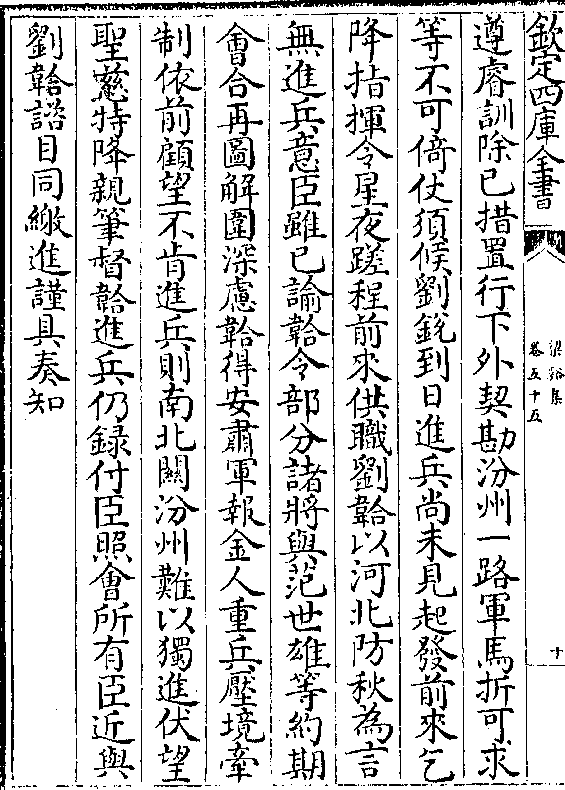 欽定四庫全書
梁谿集
卷五十五
十
遵睿訓除已措置行下外契勘汾州一路軍馬折可求
等不可倚仗須候劉銳到日進兵尚未見起發前來乞
降指揮令星夜蹉程前來供職劉韐以河北防秋為言
無進兵意臣雖已諭韐令部分諸將與范世雄等約期
會合再圖解圍深慮韐得安肅軍報金人重兵壓境牽
制依前顧望不肯進兵則南北關汾州難以獨進伏望
聖慈特降親筆督韐進兵仍録付臣照會所有臣近與
劉韐諮目同繳進謹具奏知